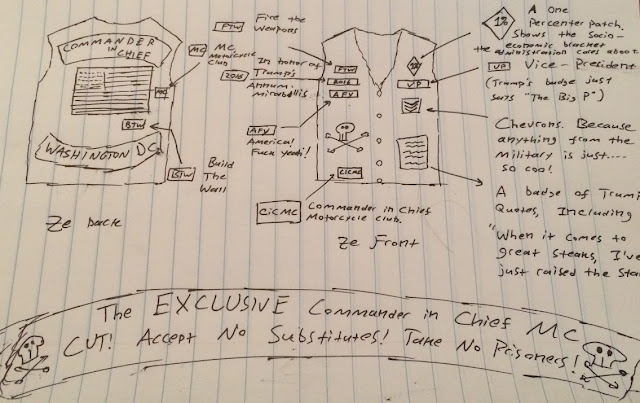 COMMANDER
IN
CHIEF
MC
BTW
WASHINGTON DC
Ze back
FTW
Fire the
Weapons
MC
MC
Motorcycle
Club
2016
In honor of
Trump's
Annum
mirabilis
AFY
America!
Fuck yeah!
BTW
Build
The
Wall
CiCMC
Commander in Chief
Motorcycle club.
FTW
2016
AFY
1%
VP
CICMC
Ze Front
1%
A One
Percenter patch.
Shows the socio-
economic bracket
the administration cares about.
VP
Vice-President
(Trump's badge just
says "The Big P")
Chevrons. Because
anything from the
military is just....
so cool!
A badge of Trump
Quotes, Including
"When it comes to
great steaks, I've
just raised the
The EXCLUSIVE Commander in Chief MC
CUT! Accept No Substitutes! Take No Prisoners!